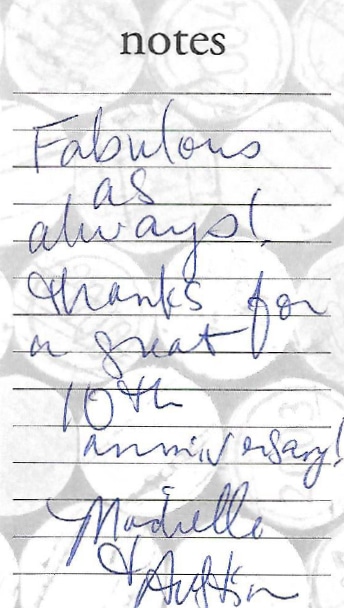 notes
Fabulous
as
always!
Thanks for
a great
10th
anniversary!
Michelle
& Austin